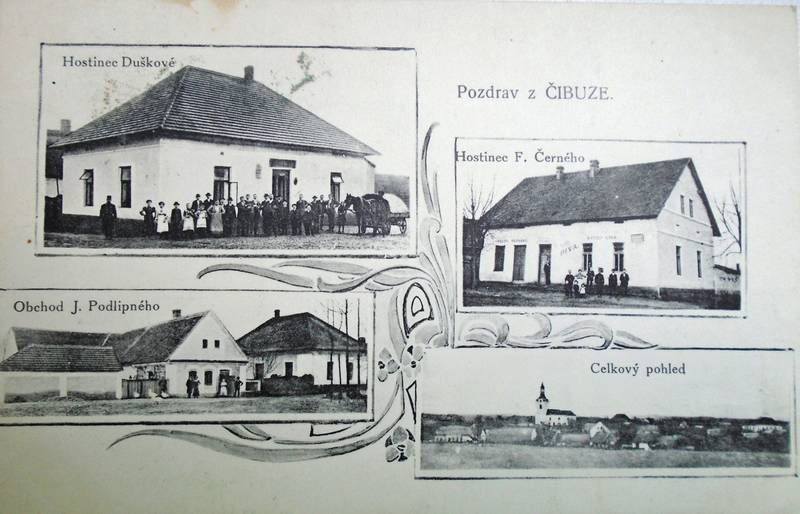 Hostinec Duškové
Pozdrav z ČIBUZE.
Hostinec F. Černého
PIVA
Obchod J. Podlipného
Celkový pohled